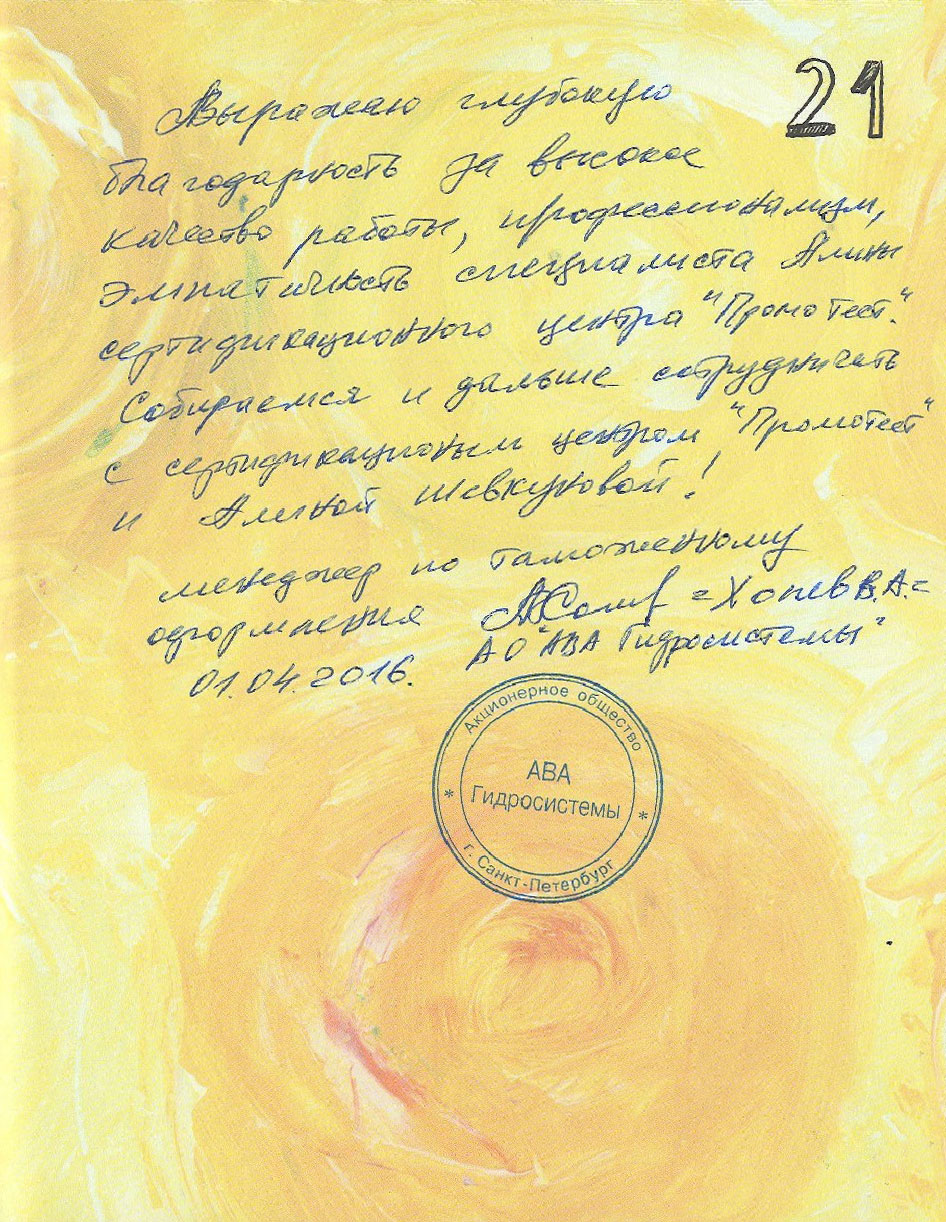 21
Выражаю глубокую
благодарность за высокое
качество работы, профессионализм,
эмпатичность специалиста Алины
сертификационного центра "Промотест".
Собираемся и дальше сотрудничать
с сертификационым центром "Промотест"
и Алиной Шевкуновой!
менеджер по таможенному
оформления = В.А.=
01.04.2016. АО "АВА Гидросистемы"
Акционерное общество
АВА
* Гидросистемы *
г. Санкт-Петербург